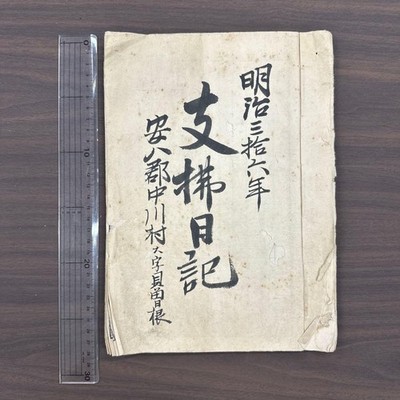 明治三拾六年
支拂日記
安八郡中川村大字貝曽根
0
10
20
30